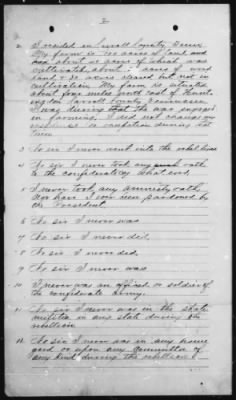 2
2. I resided in Carroll County Tenn.
My farm is 200 acres of land and
had about 40 acres of which was
cultivated about acres of wood
land & 30 acres cleared but not in
cultivation. My farm is situated
about four miles north east of Hunt-
ingdon Carroll County Tennessee
I was during the war engaged
in farming. I did not change my
residence or occupation during that
time
3 No sir I never went into the rebel lines
4 No sir I never took any such oath
to the confederacy what ever.
5 I never took any amnesty oath
nor have I ever been pardoned by
the President
6 No sir I never was
7 No sir I never did,
8 No sir I never did,
9 No sir I never was
10 I never was an officer or soldier of
the confederate army.
11 No sir I never was in the State
militia in any state during the
rebellion
12 No sir I never was in any home
guard or upon any Committee of
any kind during the rebellion